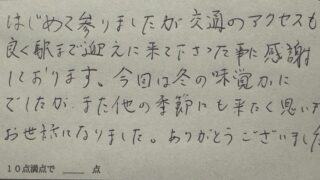 はじめて参りましたが交通のアクセスも
良く駅まで迎えに来て下さった事に感謝
しております。今回は冬の味覚カニ
でしたが、また他の季節にも来たく思いま
お世話になりました。ありがとうございました
10点満点で ____ 点